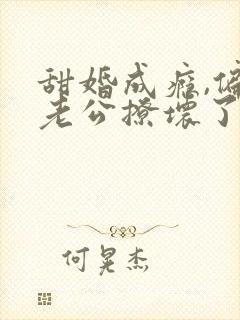 甜婚成瘾,偏
老公撩坏了
何晃杰